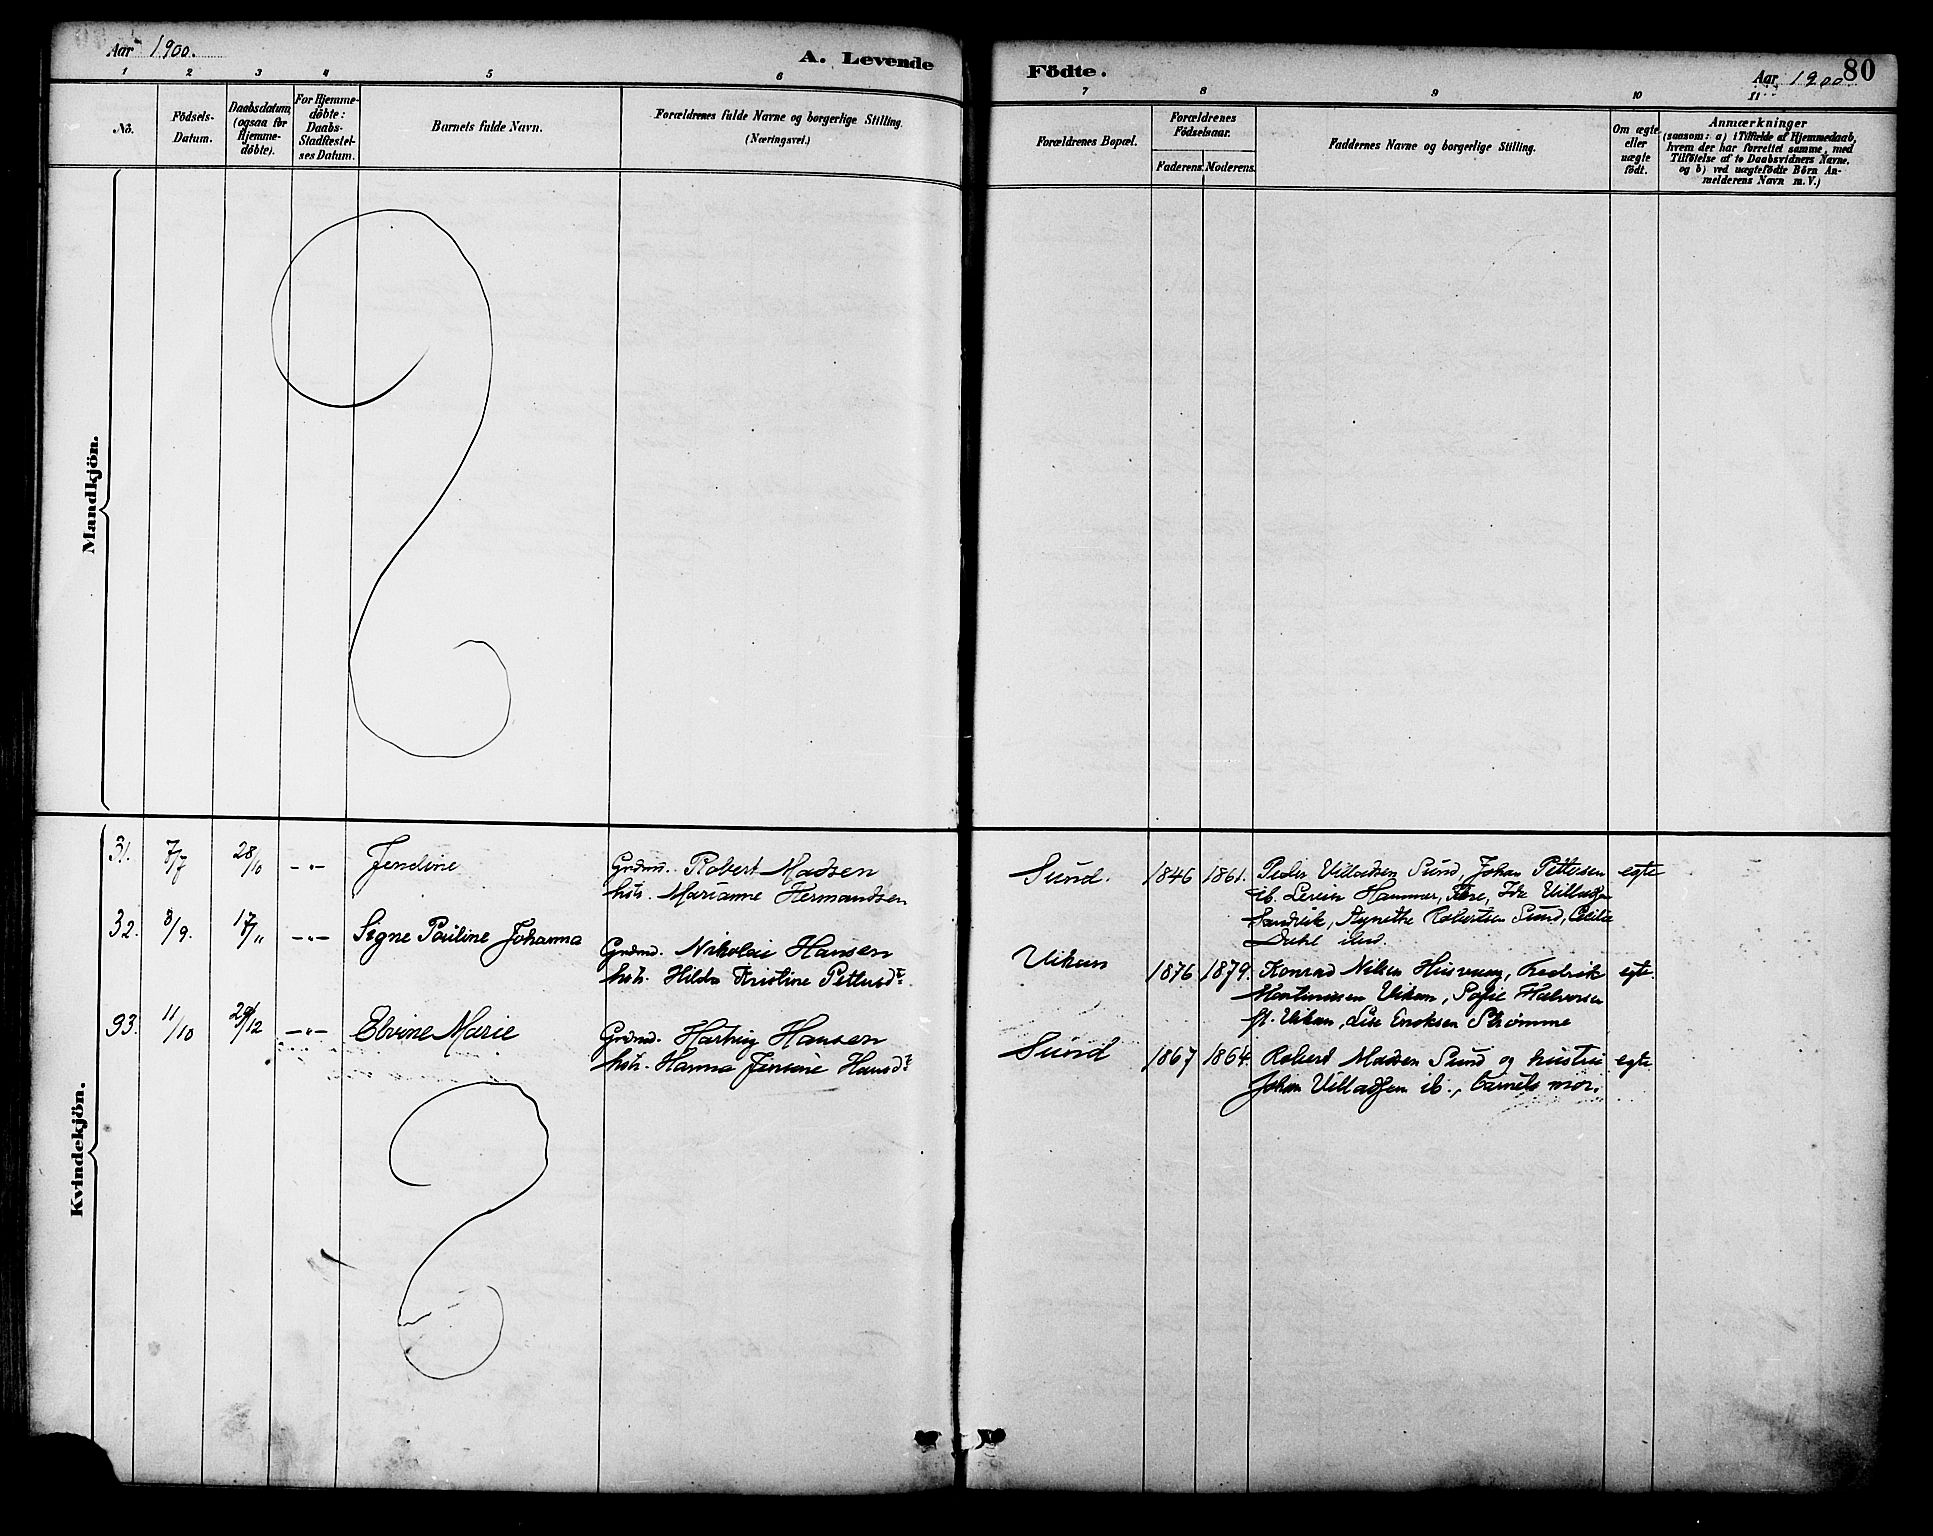 Aar 1900.
A. Levende
1 2 3 4 5 6
No.
Födsels-
Datum.
Daabsdatum,
(ogsaa for
Hjemme-
döbte).
For Hjemme-
döbte:
Daabs-
Stadfæstel-
ses Datum.
Barnets fulde Navn.
Forældrenes fulde Navne og borgerlige Stilling.
(Næringsvei.)
Mandkjön.
Kvindekjön.
31. 7/7 28/10 -"- Jendine
Grdmd. Robert Madsen
hstr. Marianne Hermandsen
32. 8/9. -"- Signe Pauline Johanna
Grdmd. Nikolai Hansen
hstr. Hilda Kristine Pettersd.
93. 11/10 -"- Elvine Marie
Grdmd. Hartvig Hansen
hstr. Hanna Jensine Hansd.
Födte.
Aar 1900
80
7 8 9 10 11
Forældrenes Bopæl.
Forældrenes
Födselsaar.
Faderens. Moderens.
Faddernes Navne og borgerlige Stilling.
Om ægte
eller
uægte
födt.
Anmærkninger
(saasom: a) i Tilfælde af Hjemmedaab,
hvem der har forrettet samme, med
Tilföielse af to Daabsvidners Navne.
og b) ved uægtefödte Börn An-
melderens Navn m. V.)
Sund. 1846 1861. Peder Villadsen Sund, Johan Pettersen egte
ib. Hammer, Villadsen
Sandvik, Robertsen Sund,
Dahl
Viken 1876 1879. Konrad Nilsen Husvaag, Fredrik egte.
Martinussen Viken, Sofie Halvorsen
Viken, Lise Enoksen Strømme
Sund 1867 1864. Robert Madsen Sund og hustru egte
Johan Villadsen ib., barnets mor.